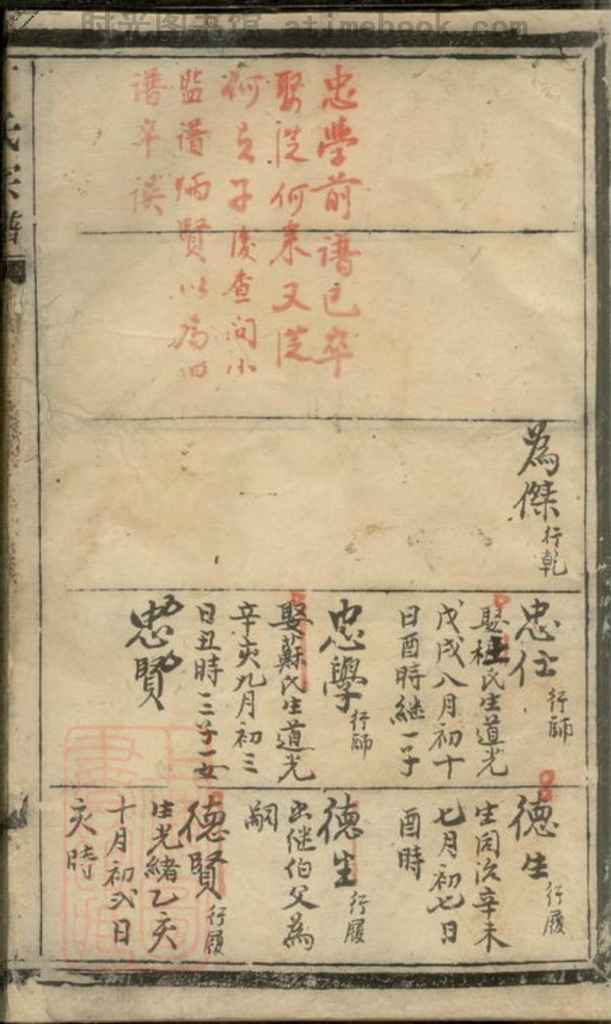 时光图书馆 www.atimebook.com
氏宗譜
忠學前譜已卒
娶漟何來又漟
何立子後查问小
監譜炳賢以為口
譜卒誤
為傑行乾
忠仕行師
娶杜氏生道光
戊戌八月初十
日酉時継一子
忠學行師
娶蘇氏生道光
辛亥九月初三
日丑時二子一女
忠賢
德生行履
生同治辛未
七月初七日
酉時
德生行履
出继伯父為
嗣
德賢行履
生光緒乙亥
十月初弐日
亥時